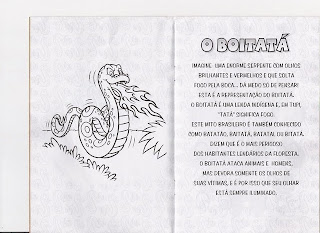 O BOITATÁ
IMAGINE UMA ENORME SERPENTE COM OLHOS
BRILHANTES E VERMELHOS E QUE SOLTA
FOGO PELA BOCA... DÁ MEDO SÓ DE PENSAR!
ESTA É A REPRESENTAÇÃO DO BOITATÁ.
O BOITATÁ É UMA LENDA INDÍGENA E, EM TUPI,
"TATÁ" SIGNIFICA FOGO.
ESTE MITO BRASILEIRO É TAMBÉM CONHECIDO
COMO BATATÃO, BAITATÁ, BATATAL OU BITATÁ.
DIZEM QUE É O MAIS PERIGOSO
DOS HABITANTES LENDÁRIOS DA FLORESTA.
O BOITATÁ ATACA ANIMAIS E HOMENS,
MAS DEVORA SOMENTE OS OLHOS DE
SUAS VÍTIMAS, E É POR ISSO QUE SEU OLHAR
ESTÁ SEMPRE ILUMINADO.